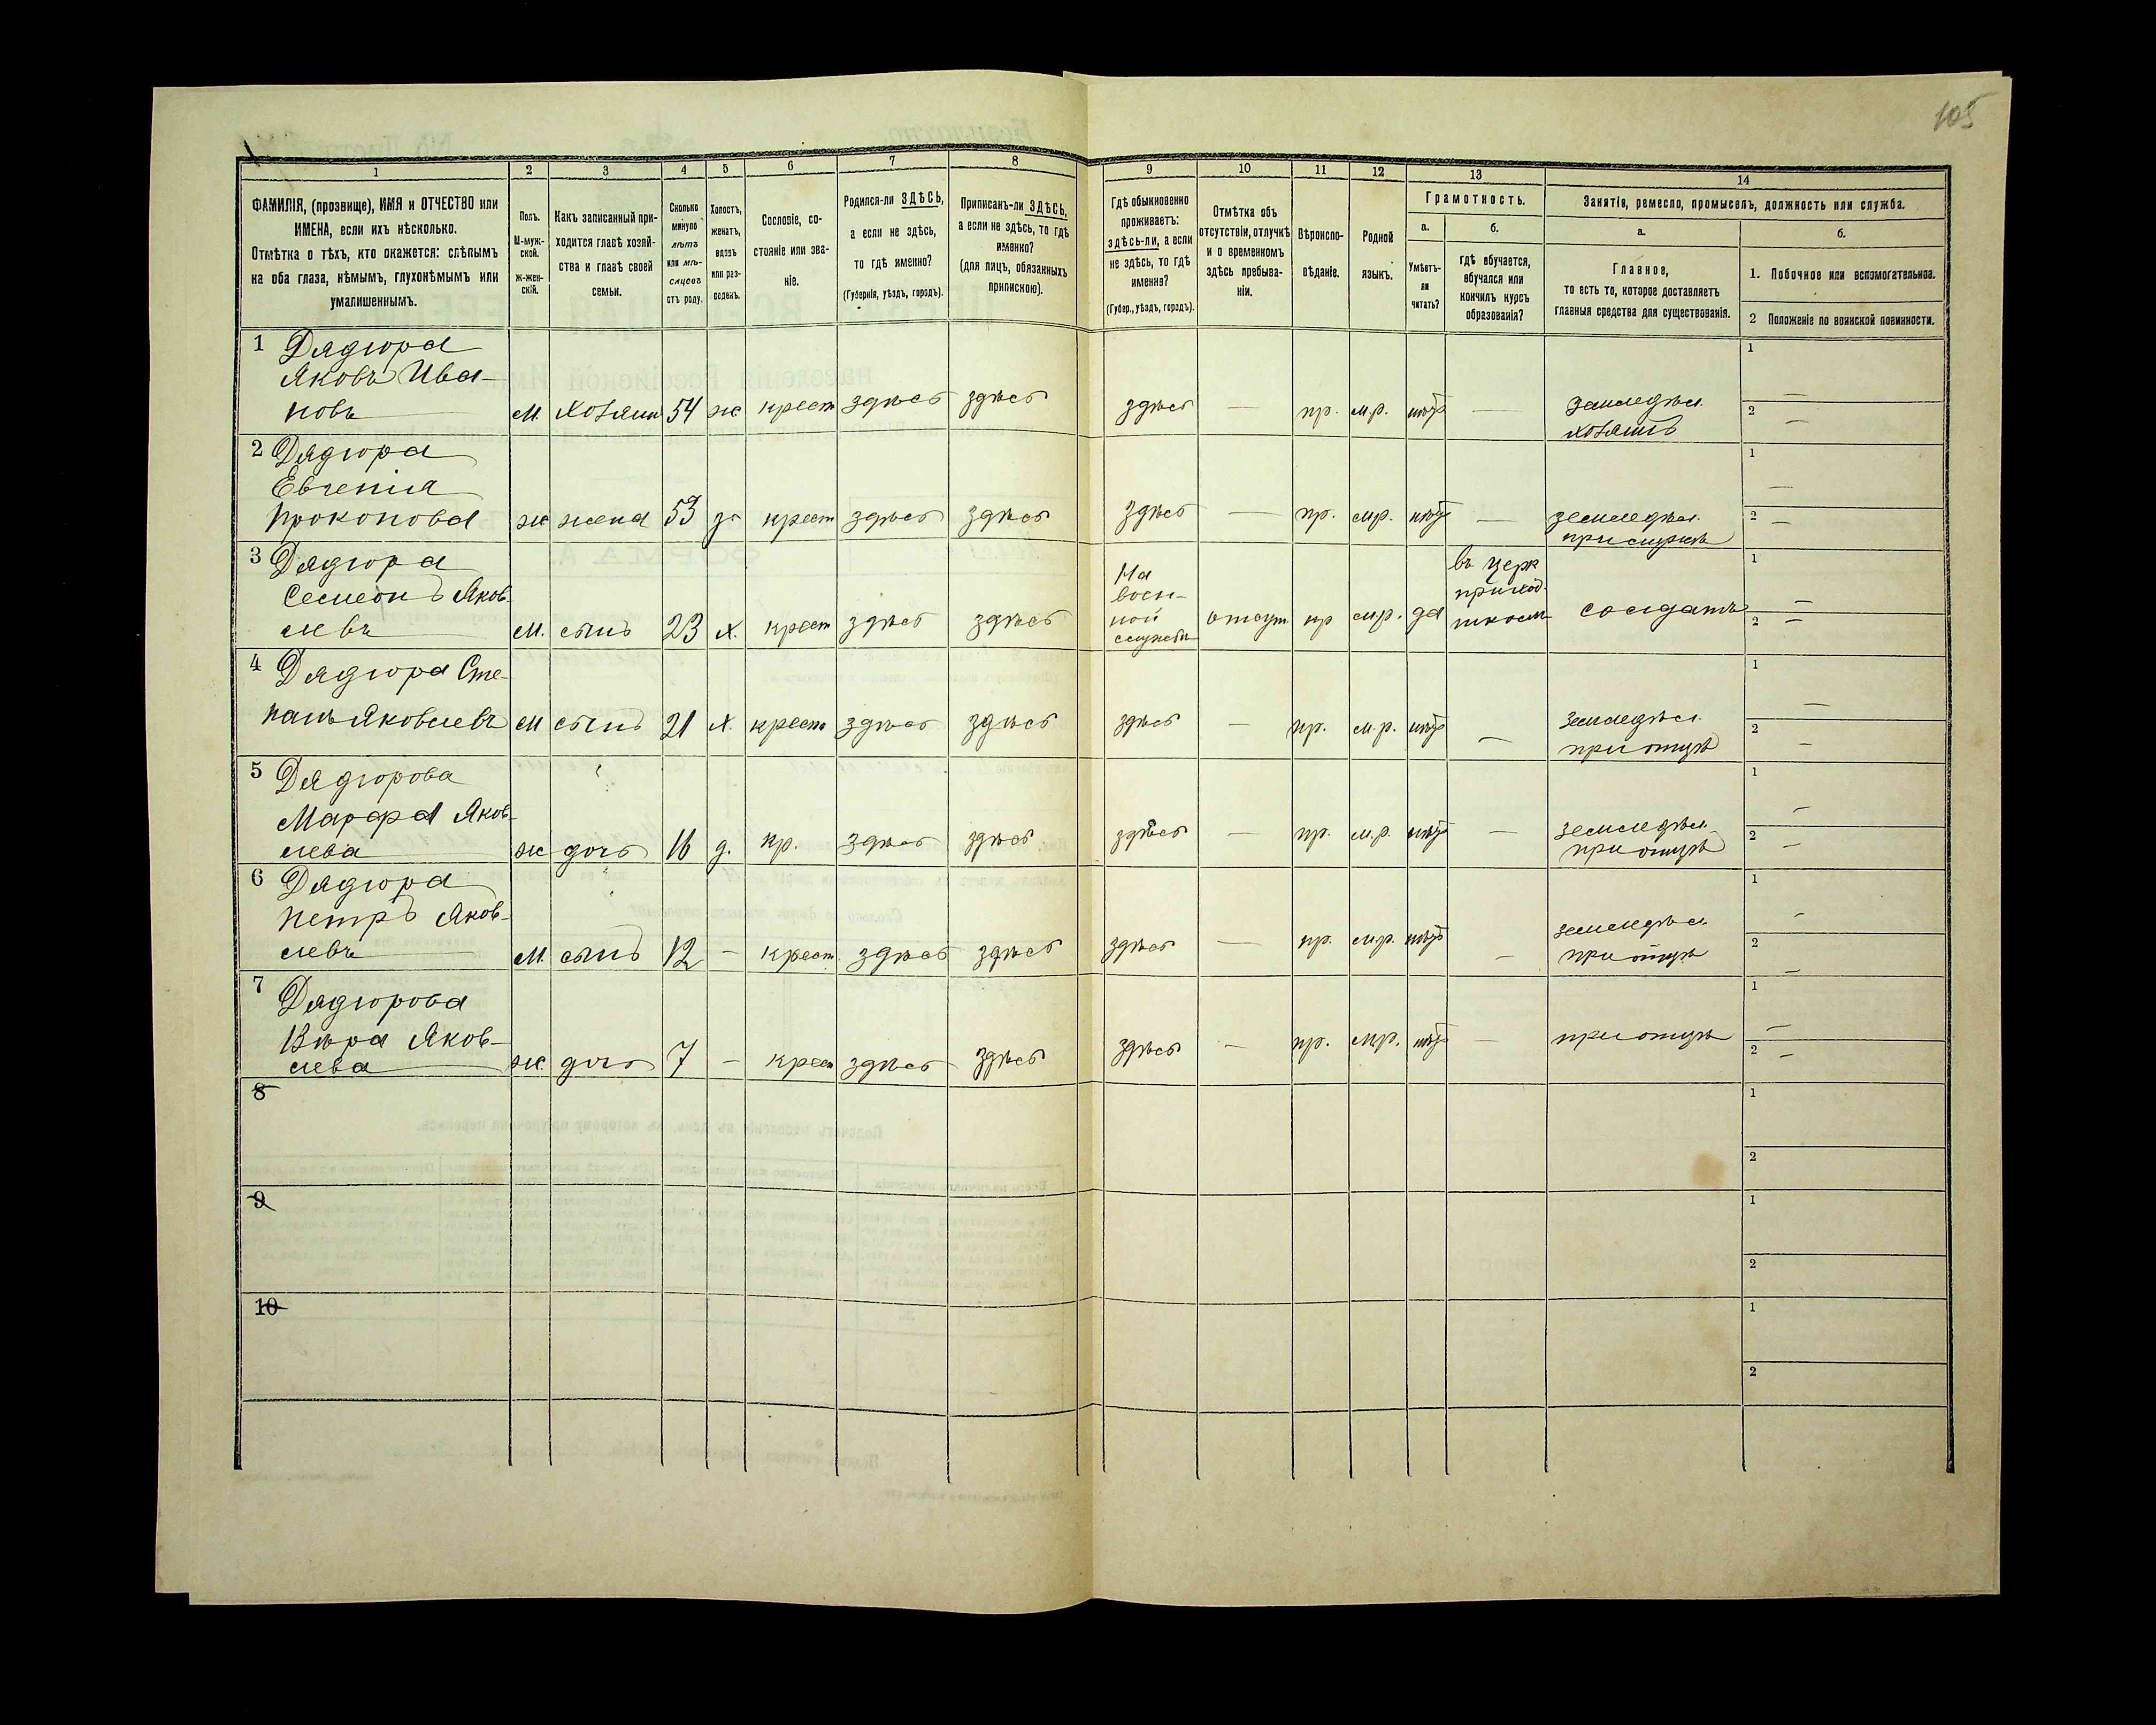 105
1 2 3 4 5 6 7 8 9 10 11 12 13 14
ФАМИЛІЯ, (прозвище), ИМЯ и ОТЧЕСТВО или
ИМЕНА, если ихъ нѣсколько.
Отмѣтка о тѣхъ, кто окажется: слѣпымъ
на оба глаза, нѣмымъ, глухонѣмымъ или
умалишеннымъ.
Полъ.
М-муж-
ской.
ж-жен-
скій.
Какъ записанный при-
ходится главѣ хозяй-
ства и главѣ своей
семьи.
Сколько
минуло
лѣтъ
или мѣ-
сяцевъ
отъ роду.
Холостъ,
женатъ,
вдовъ
или раз-
веденъ.
Сословіе, со-
стояніе или зва-
ніе.
Родился-ли ЗДѢСЬ,
а если не здѣсь,
то гдѣ именно?
(Губернія, уѣздъ, городъ).
Приписанъ-ли ЗДѢСЬ,
а если не здѣсь, то гдѣ
именно?
(для лицъ, обязанныхъ
припискою).
Гдѣ обыкновенно
проживаетъ:
здѣсь-ли, а если
не здѣсь, то гдѣ
именно?
(Губер., уѣздъ, городъ).
Отмѣтка объ
отсутствіи, отлучкѣ
и о временномъ
здѣсь пребыва-
ніи.
Вѣроиспо-
вѣданіе.
Родной
языкъ.
Грамотность.
а.
Умѣетъ-
ли
читать?
б.
гдѣ обучается,
обучался или
кончилъ курсъ
образованія?
Занятіе, ремесло, промыселъ, должность или служба.
а.
Главное,
то есть то, которое доставляетъ
главныя средства для существованія.
б.
1. Побочное или вспомогательное.
2 Положеніе по воинской повинности.
1 Дядюра
Яковъ Ива-
новъ м хозяинъ 54 ж крест здѣсь здѣсь здѣсь — пр. м.р. нѣтъ — земледѣл.
хозяинъ
1 —
2 —
2 Дядюра
Евгенія
Прокопова ж жена 53 за крест здѣсь здѣсь здѣсь — пр. мр. нѣтъ — земледѣл.
при мужѣ
1 —
2 —
3 Дядюра
Семеонъ Яков-
левъ м. сынъ 23 х. крест здѣсь здѣсь
На
воен-
ной
службѣ
отсут. пр мр. да
въ церк
приход.
школѣ
солдатъ
1 —
2 —
4 Дядюра Сте-
панъ Яковлевъ м сынъ 21 х. крест здѣсь здѣсь здѣсь — пр. м.р. нѣтъ — земледѣл.
при отцѣ
1 —
2 —
5 Дядюрова
Марфа Яков-
лева ж дочь 16 д. кр. здѣсь здѣсь здѣсь — пр. м.р. нѣтъ — земледѣл.
при отцѣ
1 —
2 —
6 Дядюра
Петръ Яков-
левъ м. сынъ 12 — крест. здѣсь здѣсь здѣсь — пр. мр. нѣтъ — земледѣл.
при отцѣ
1 —
2 —
7 Дядюрова
Вѣра Яков-
лева ж. дочь 7 — крест здѣсь здѣсь здѣсь — пр. мр. нѣтъ — при отцѣ
1 —
2 —
8
1
2
9
1
2
10
1
2